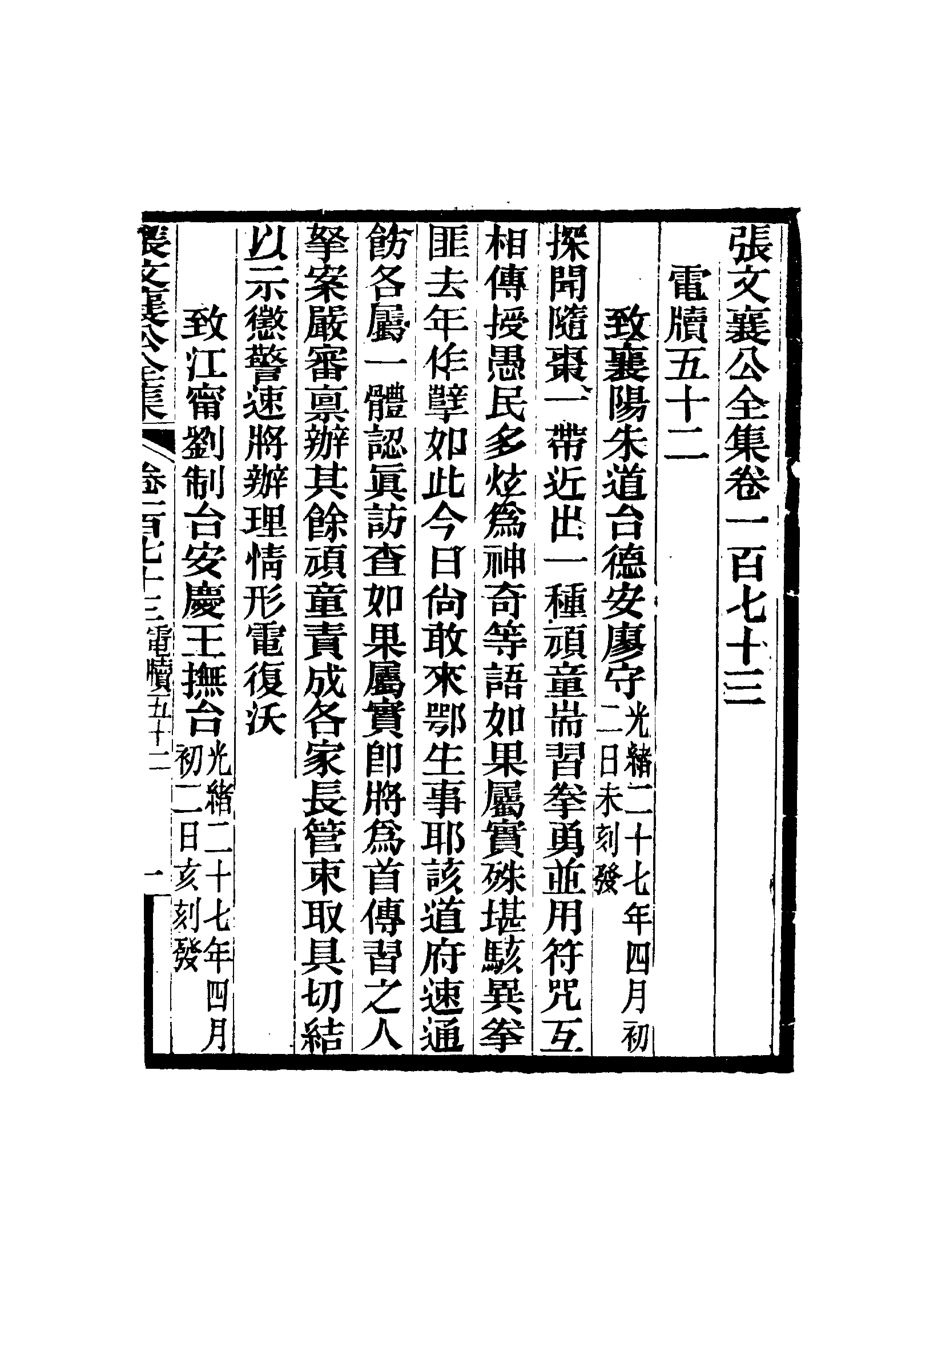 張文襄公全集卷一百七十三
電牘五十二
致襄陽朱道台德安廖守光緒二十七年四月初二日未刻發
探聞隨棗一帶近出一種頑童耑習拳勇並用符咒互
相傳授愚民多炫爲神奇等語如果屬實殊堪駭異拳
匪去年作孽如此今日尙敢來鄂生事耶該道府速通
飭各屬一體認眞訪查如果屬實卽將爲首傳習之人
拏案嚴審禀辦其餘頑童責成各家長管束取具切結
以示懲警速將辦理情形電復沃
致江甯劉制台安慶王撫台光緒二十七年四月初二日亥刻發
張文襄公全集 卷一百七十三 電牘五十二 一